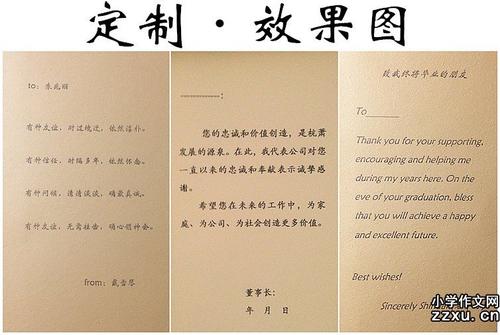 定制·效果图
to: 朱兆丽
有种友谊，时过境迁，依然淳朴。
有种信任，时隔多年，依然怀念。
有种问候，清清淡淡，确最真诚。
有种友谊，无需挂齿，确心领神会。
from:
您的忠诚和价值创造，是杭萧
发展的源泉。在此，我代表公司对您
一直以来的忠诚和奉献表示诚挚感
谢。
希望您在未来的工作中，为家
庭、为公司、为社会创造更多价值。
董事长：
年 月 日
致我终将毕业的朋友
To
Thank you for your supporting,
encouraging and helping me
during my years here. On the
eve of your graduation, bless
that you will achieve a happy
and excellent future.
Best wishes!
Sincerely
小学作文网
zzxu.cn